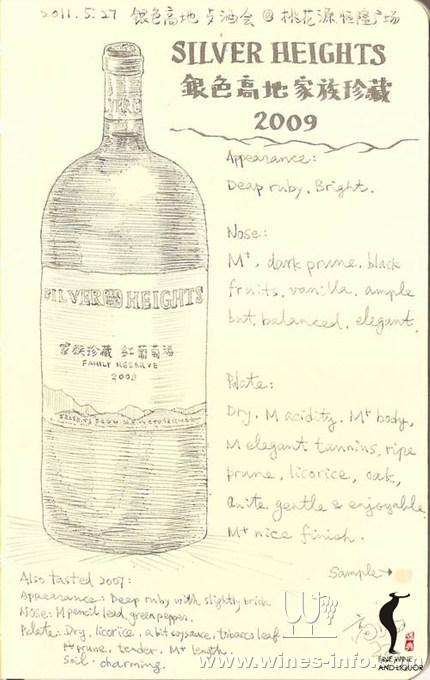 2011.5.27 銀色高地 品酒会 @ 桃花源.恒隆广场
SILVER HEIGHTS
銀色高地家族珍藏
2009
Appearance:
Deap ruby. Bright.
Nose:
M+, dark prune, black
fruits, vanilla, ample
but balanced, elegant.
Palate:
Dry, M acidity, M+ body,
M elegant tannins, ripe
prune, licorice, oak,
quite gentle & enjoyable
M+ nice finish.
Sample→
SILVER HEIGHTS
家族珍藏 红葡萄酒
FAMILY RESERVE
2009
Also tasted 2007:
Appearance: Deep ruby with slightly brick
Nose: M pencil lead, green pepper.
Palate: Dry, licorice, a bit soysauce, tobacco leaf
prune, tender. M+ length.
Soil. charming.
FINE WINE
AND LIQUOR
www.wines-info.com